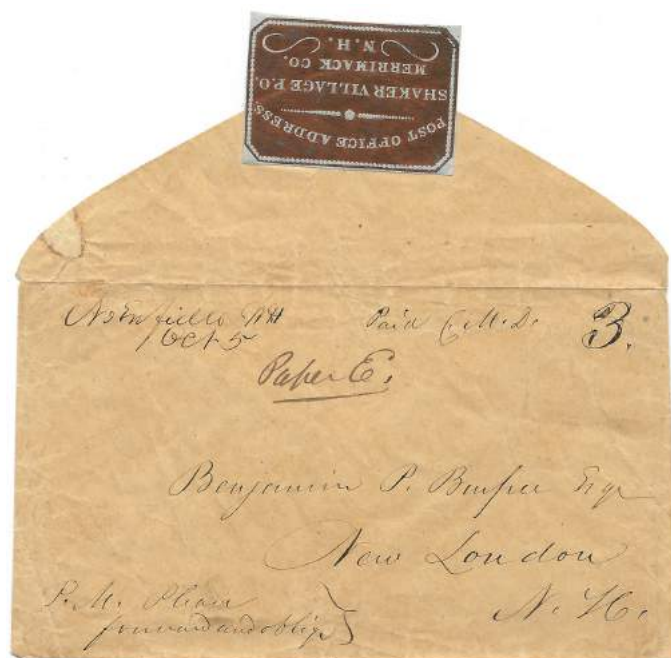 POST OFFICE ADDRESS
SHAKER VILLAGE P.O.
MERRIMACK CO.
N.H.
No Enfield NH
Oct 5
Paid C.M.D.
3.
Paper E.
Benjamin P. Burpee Esqr
New London
N. H.
P. M. Please
forward and oblige